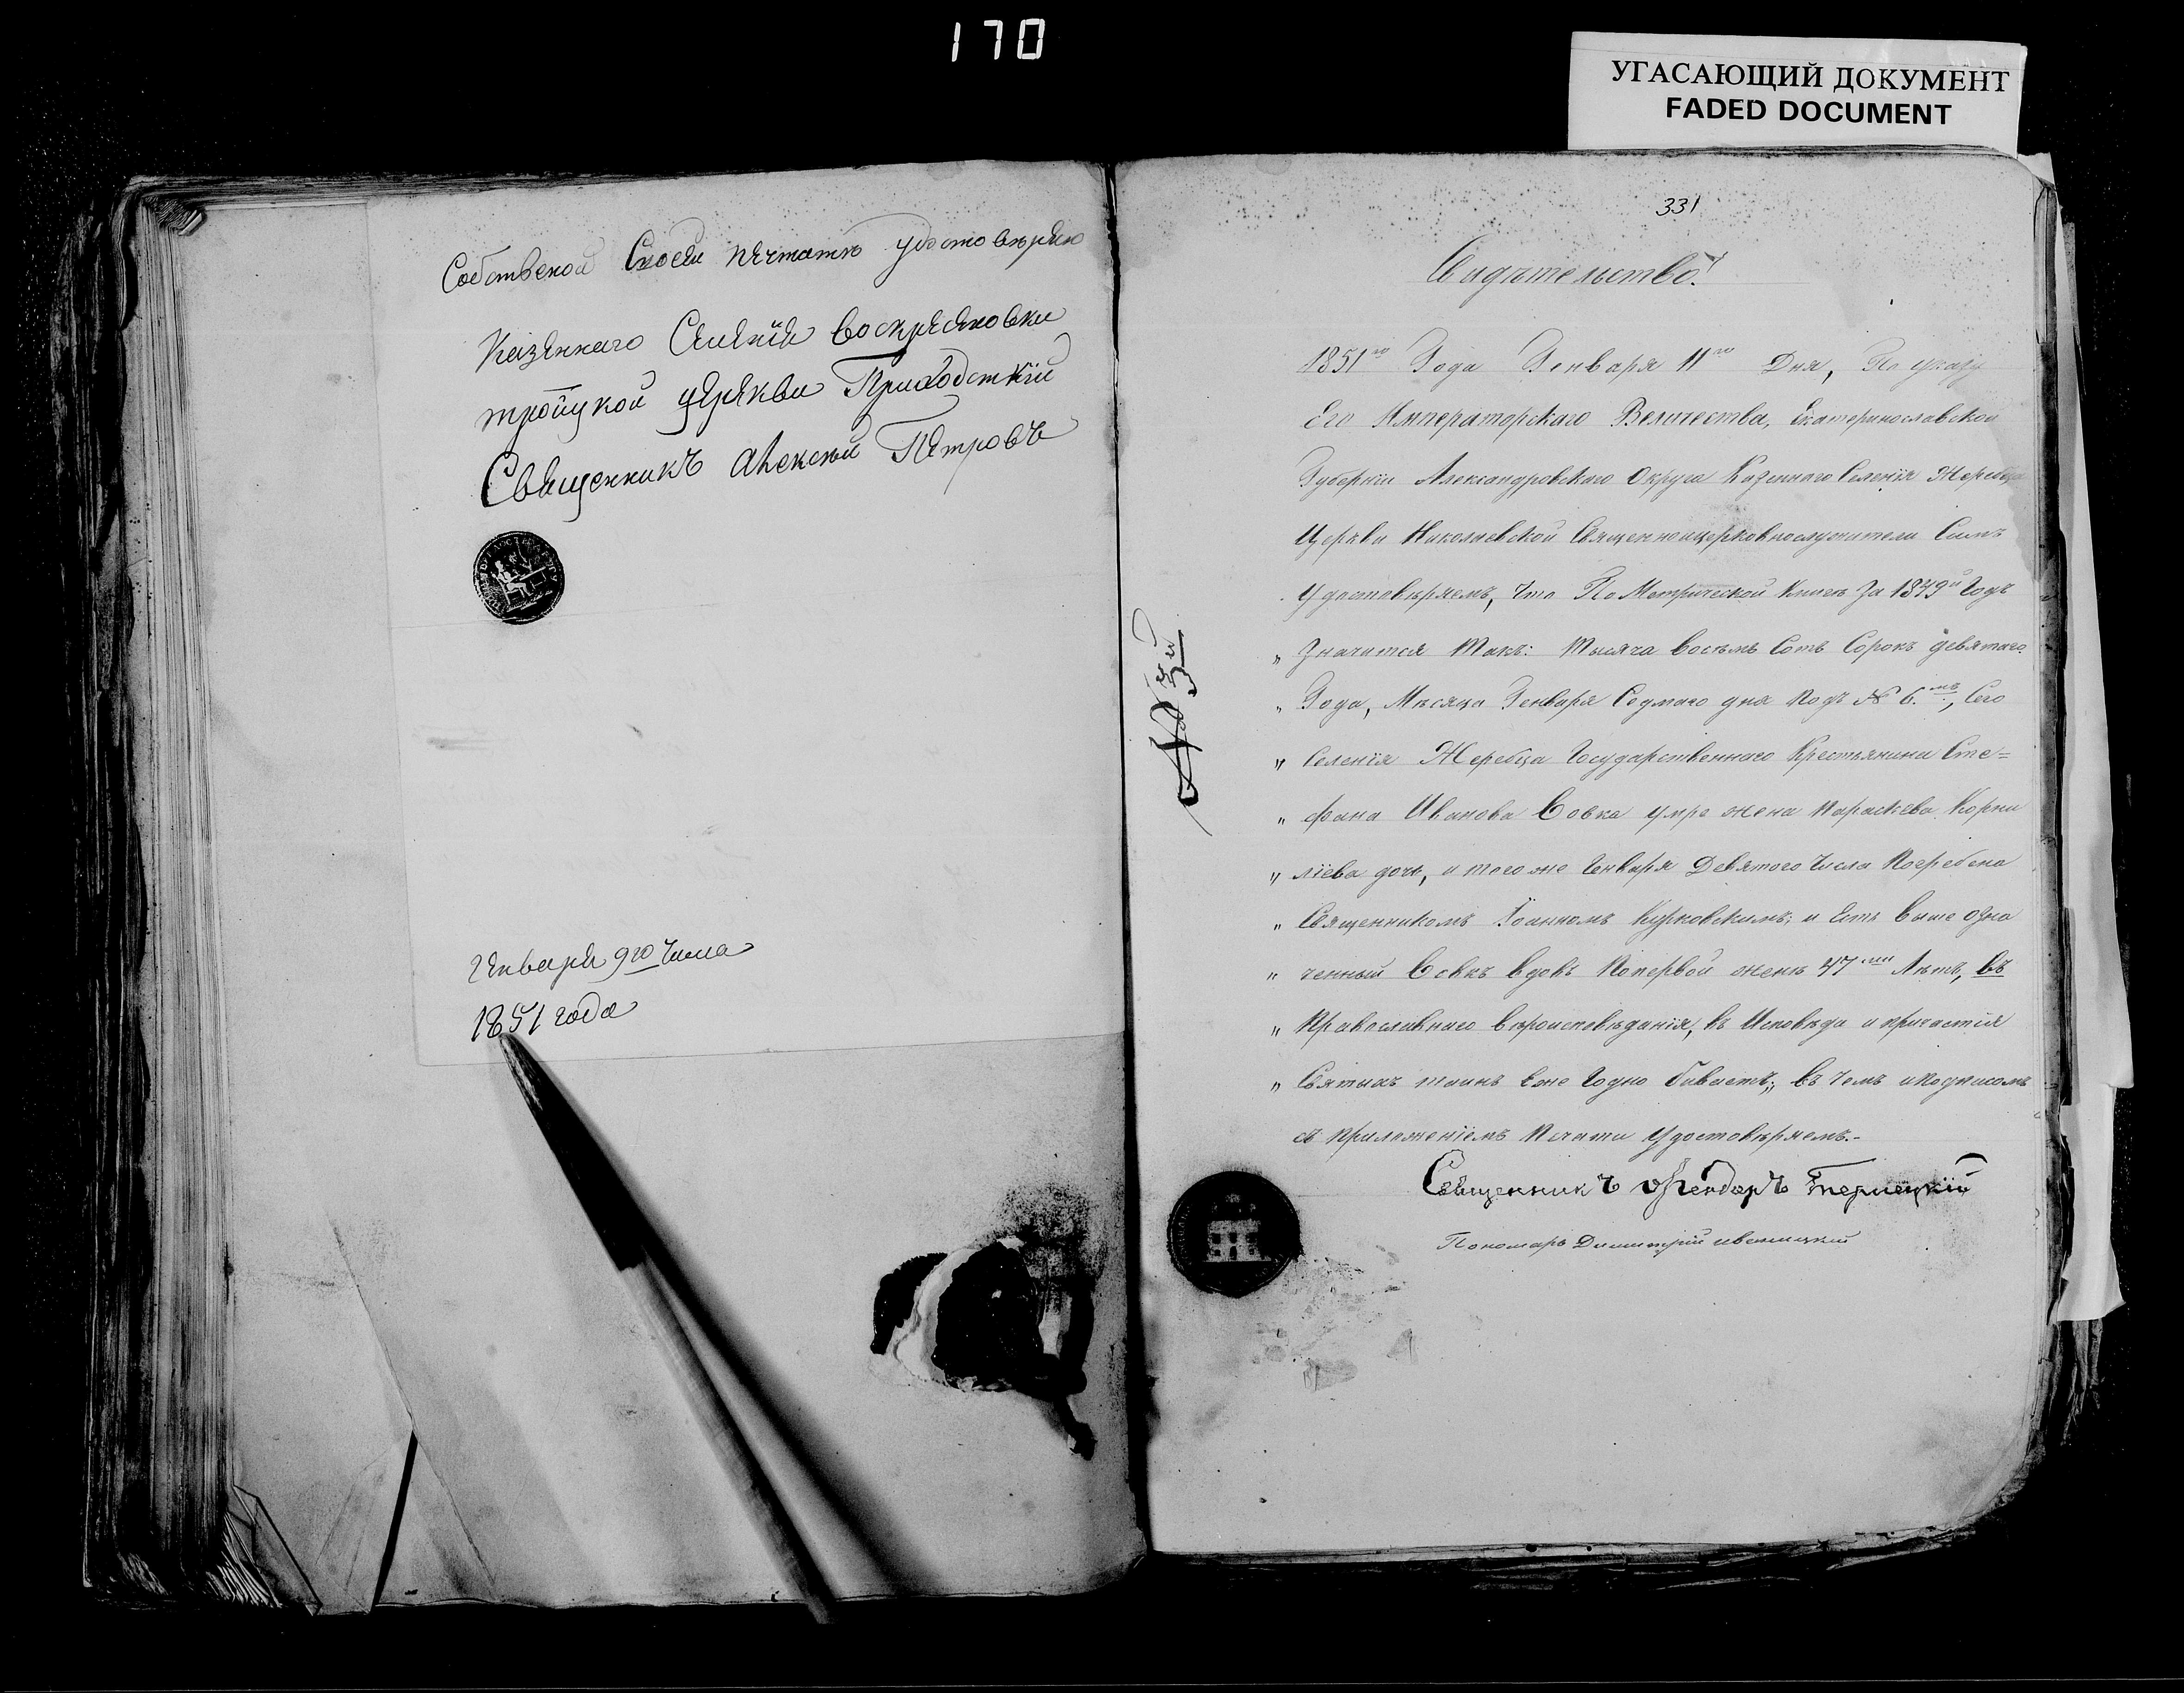 170
УГАСАЮЩИЙ ДОКУМЕНТ
FADED DOCUMENT
Собственой Своей печатю удостоверяю
Казеннаго Селенія Воскресеновки
троицкой церкви Приходскій
Священникъ Алексѣй Петровъ
Генваря 9го числа
1851 года
331
Свидѣтельство.
1851го Года Генваря 11го Дня, По указу
Его Императорскаго Величества, Екатеринославской
Губерніи Александровскаго Округа Казеннаго Селенія Жеребца
Церкви Николаевской Священноицерковнослужители Симъ
удостовѣряемъ, что По Метрической книгѣ За 1849й Годъ
„ Значится Такъ: Тысяча восемь Сотъ Сорокъ девятаго
„ Года, Мѣсяца Генваря Седмаго дня подъ № 6.мъ, Сего
„ Селенія Жеребца Государственнаго Крестьянина Сте=
„ фана Иванова Совка умре жена Параскева Корни
„ліева дочь, и того же Генваря Девятого Числа Погребена
„ Священникомъ Іоанномъ Курковскимъ; и Есть выше озна
„ ченный Совкъ вдовъ Попервой женѣ 47ми Лѣтъ, въ
„ Православнаго вѣроисповѣданія, въ Исповѣди и причастія
„ Святыхъ таинъ Еже Годно бываетъ;„ въ чемъ и подписомъ
съ приложеніемъ Печати Удостовѣряемъ.-
Священникъ Терлецкій
Пономарь Димитрій